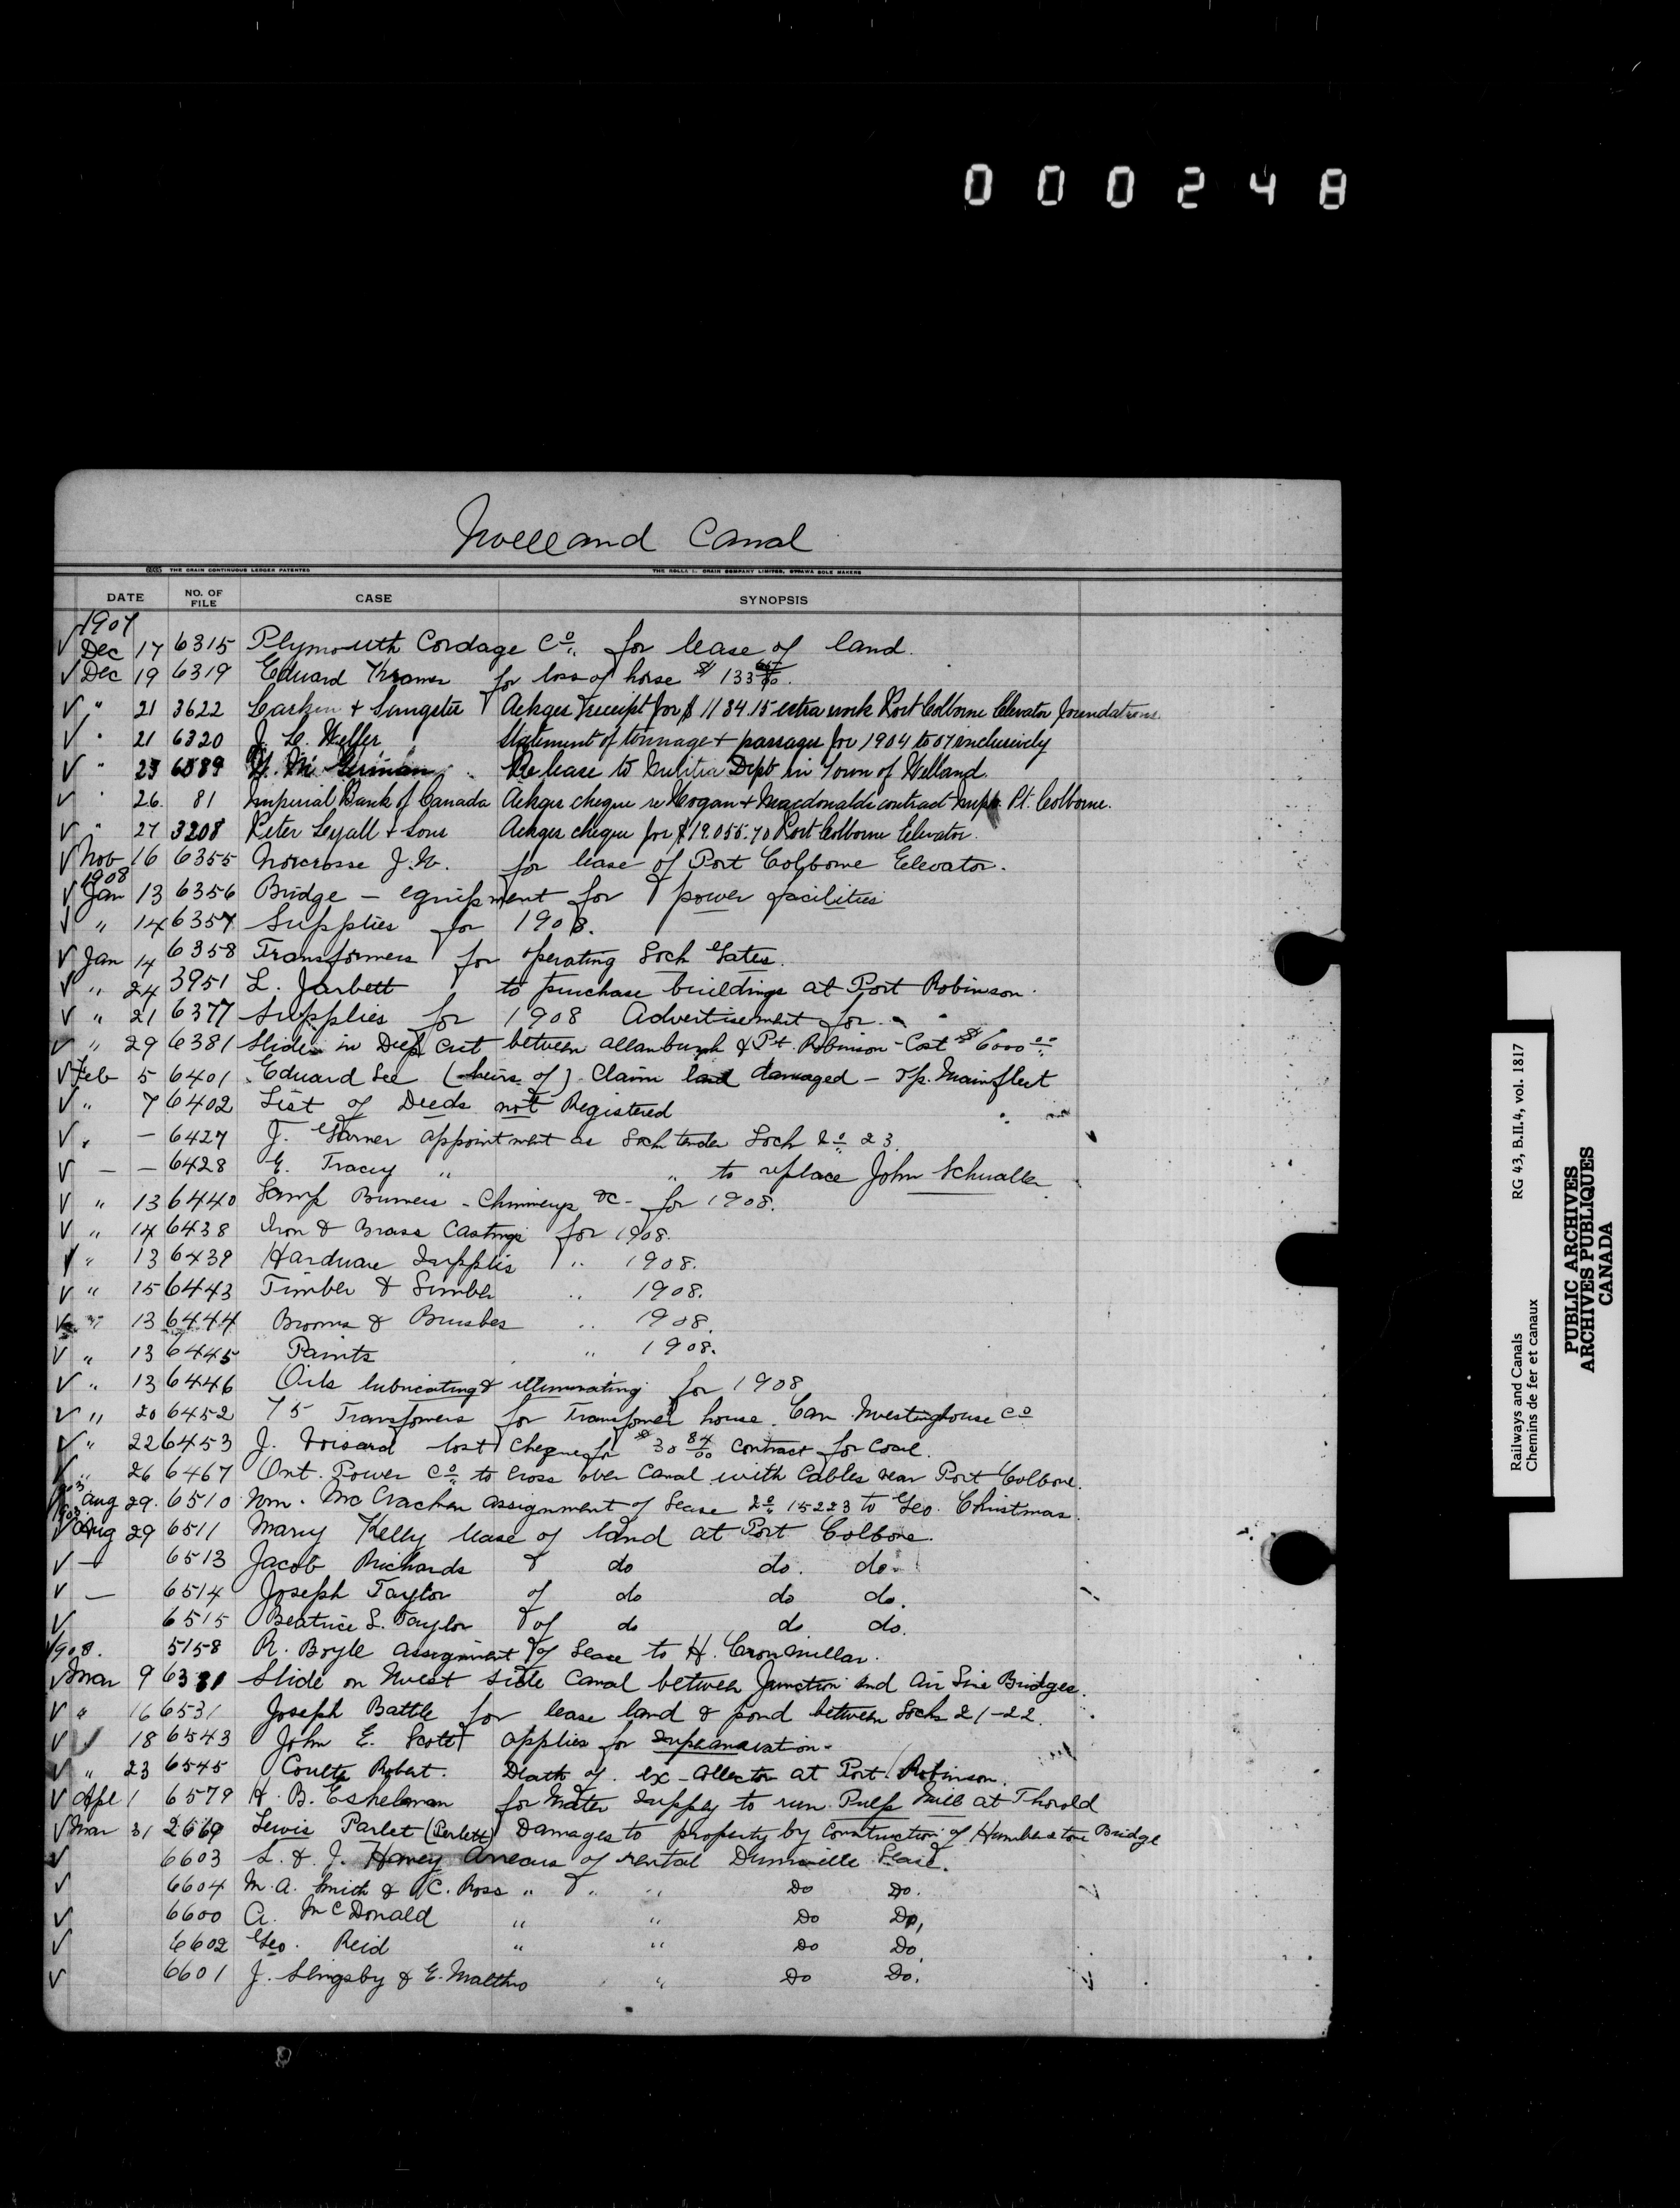 0 0 0 2 4 8
Welland Canal
THE CRAIN CONTINUOUS LEDGER PATENTED THE ROLLA L. CRAIN COMPANY LIMITED, OTTAWA SOLE MAKERS
DATE NO. OF FILE CASE SYNOPSIS
1907
√ Dec 17 6315 Plymouth Cordage Co. for lease of land.
√ Dec 19 6319 Edward Kramer for loss of horse $133
√ " 21 3622 Larkin & Sangster Ackges receipt for $1184.15 extra work Port Colborne Elevator foundations.
√ " 21 6320 J. L. Weller Statement of tonnage & passages for 1904 to 07 inclusively
√ " 23 6589 W. M. German Re lease to Militia Dept in Town of Welland.
√ " 26. 81 Imperial Bank of Canada Ackges cheque re Hogan & Macdonalds contract Pt. Colborne.
√ " 27 3208 Peter Lyall & Sons Ackges cheque for $19.055.70 Port Colborne Elevator.
√ Nov 16 6355 Norcrosse J. W. for lease of Port Colborne Elevator.
1908
√ Jan 13 6356 Bridge – equipment for power facilities
√ " 14 6357 Supplies for 1908.
√ Jan 14 6358 Transformers for operating Lock Gates.
√ " 24 3951 L. Jarbett to purchase buildings at Port Robinson.
√ " 21 6377 Supplies for 1908 Advertisement for. " "
√ " 29 6381 Slides in Deep Cut between Allanburgh & Pt. Robinson – Cost $6000 00
√ Feb 5 6401 Edward Lee (heirs of) Claim land damaged – Tp. Wainfleet
√ " 7 6402 List of Deeds not Registered
√ " – 6427 J. Garner appointment as Lock tender Lock No. 23.
√ – – 6428 E. Tracey " " to replace John Schwaller
√ " 13 6440 Lamp Burners – Chimneys &c – for 1908.
√ " 14 6438 Iron & Brass Castings for 1908.
√ " 13 6439 Hardware Supplies " 1908.
√ " 15 6443 Timber & Lumber " 1908.
√ " 13 6444 Brooms & Brushes " 1908.
√ " 13 6445 Paints " 1908.
√ " 13 6446 Oils lubricating & illuminating for 1908
√ " 20 6452 75 Transfomers for Transfomer house. Can Westinghouse Co
√ " 22 6453 J. Voisard lost cheque for $30 84/00 contract for Coal.
√ " 26 6467 Ont. Power Co. to cross over Canal with Cables near Port Colborne.
√ Aug 29. 6510 Wm. McCracken assignment of Lease No 15223 to Geo. Christmas.
√ Aug 29 6511 Mary Kelly lease of land at Port Colborne.
√ – 6513 Jacob Richards of do do. do.
√ – 6514 Joseph Taylor of do do do.
√ 6515 Beatrice L. Taylor of do do. do.
1908. 5158 R. Boyle assignment of Lease to H. Cronmiller.
√ Mar 9 6381 Slide on West side Canal between Junction and Air Line Bridges.
√ " 16 6531 Joseph Battle for lease land & pond between Locks 21–22.
√ " 18 6543 John E. Scott applies for Supeanuation.
√ " 23 6545 Coulter Robert. Death of ex-Collector at Port Robinson.
√ Apl 1 6579 H. B. Eshelman for Water Supply to run Pulp Mill at Thorold
√ Mar 31 2669 Lewis Parlet (Perlett) Damages to property by Construction of Humberstone Bridge
√ 6603 L. & J. Haney Arrears of rental Dunnville Lease.
√ 6604 M. A. Smith & C. Ross " " " Do Do.
√ 6600 A. McDonald " " Do Do,
√ 6602 Geo. Reid " " Do Do,
√ 6601 J. Slingsby & E. " Do Do.
Railways and Canals RG 43, B.II.4, vol. 1817
Chemins de fer et canaux
PUBLIC ARCHIVES
ARCHIVES PUBLIQUES
CANADA